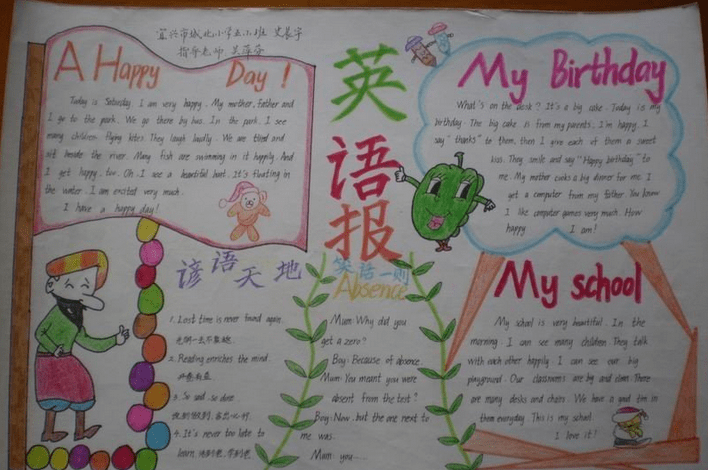 宜兴市城北小学五
指导老师
A Happy Day!
Today is Saturday. I am very happy. My mother, father and
I go to the park. We go there by bus. In the park, I see
many children flying kites. They laugh loudly. We are tired and
sit beside the river. Many fish are swimming in it happily. And
I get happy, too. Oh, I see a beautiful boat. It's floating in
the water. I am excited very much.
I have a happy day!
英语报
My Birthday
What's on the desk? It's a big cake. Today is my
birthday. The big cake is from my parents, I'm happy. I
say "thanks" to them, then I give each of them a sweet
kiss. They smile and say "Happy birthday" to
me. My mother cooks a big dinner for me. I
get a computer from my father. You know
I like computer games very much. How
happy I am!
谚语天地
1. Lost time is never found again.
2. Reading enriches the mind.
开卷有益
3. So said, so done
说到做到,
4. It's never too late to
learn.
笑话一则
Absence
Mum: Why did you
get a zero?
Boy: Because of absence.
Mum: You meant you were
absent from the test?
Boy: Now.. but the one next to
me was.
Mum: you....
My school
My school is very beautiful. In the
morning. I can see many children. They talk
with each other happily. I can see our big
playground. Our classrooms are big and clean. There
are many desks and chairs. We have a good time in
them everyday. This is my school.
I love it!